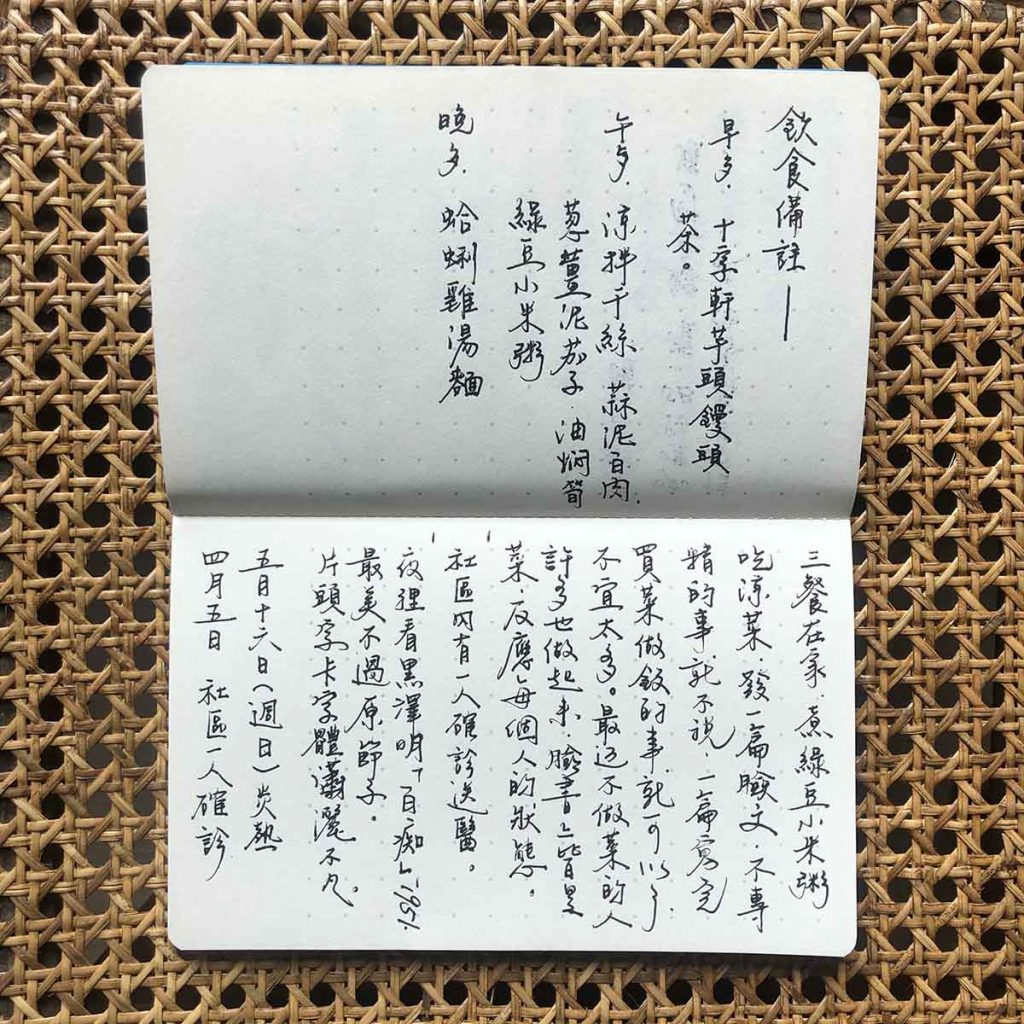 飲食備註——
早歺. 十字軒芋頭饅頭
茶。
午歺. 涼拌干絲.蒜泥白肉.
蔥薑泥茄子.油燜筍
綠豆小米粥
晚歺. 蛤蜊雞湯麵
三餐在家.煮綠豆小米粥
吃涼菜.發一篇臉文.不專
精的事.就不說.一篇寫完
買菜做飯的事.就可以了.
不宜太多。最近不做菜的人
許多也做起來.臉書上皆是
菜.反應每個人的狀態。
社區內有一人確診送醫。
夜裡看黑澤明「白痴」1951.
最美不過原節子。
片頭字卡字體瀟灑不凡。
五月十六日(週日)炎熱
四月五日 社區一人確診